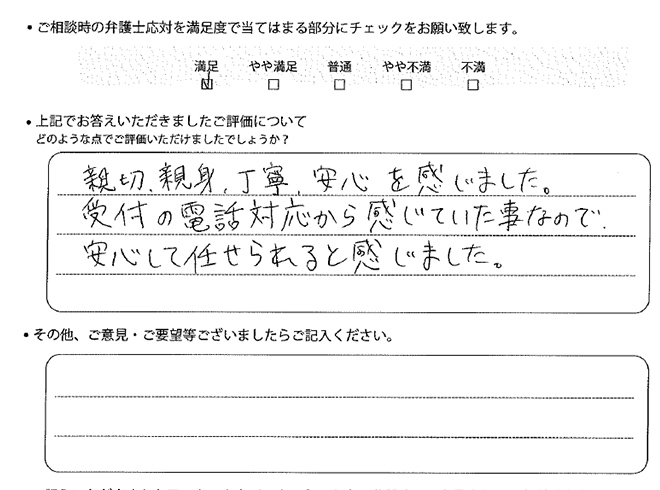 ・ご相談時の弁護士応対を満足度で当てはまる部分にチェックをお願い致します。
満足 やや満足 普通 やや不満 不満
☑ □ □ □ □
・上記でお答えいただきましたご評価について
どのような点でご評価いただけましたでしょうか？
親切、親身、丁寧、安心を感じました。
受付の電話対応から感じていた事なので、
安心して任せられると感じました。
・その他、ご意見・ご要望等ございましたらご記入ください。